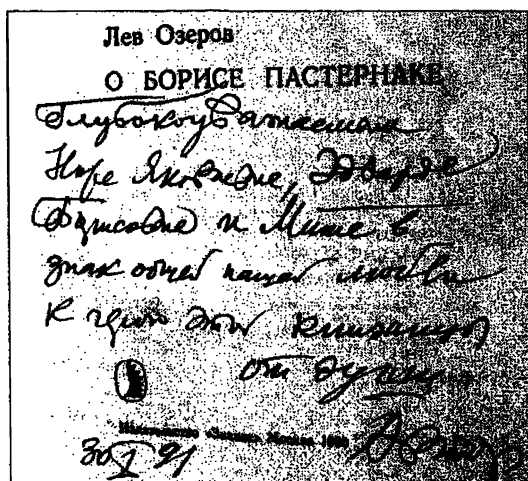 Лев Озеров
О БОРИСЕ ПАСТЕРНАКЕ
Глубокоуважаемым
Норе Яковлевне, Эдварде
Борисовне и Мише в
знак общей нашей любви
к герою этой книжицы
от
Издательство «Знание» Москва 1990
30 I 91